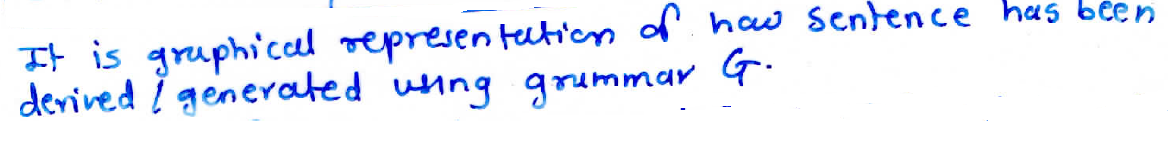 It is graphical representation of how sentence has been
derived / generated using grammar G.